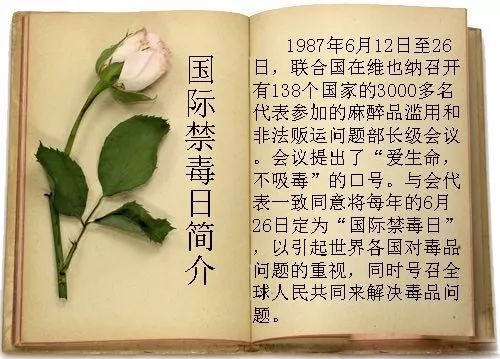 国际禁毒日简介
1987年6月12日至26
日，联合国在维也纳召开
有138个国家的3000多名
代表参加的麻醉品滥用和
非法贩运问题部长级会议
。会议提出了“爱生命，
不吸毒”的口号。与会代
表一致同意将每年的6月
26日定为“国际禁毒日”
，以引起世界各国对毒品
问题的重视，同时号召全
球人民共同来解决毒品问
题。